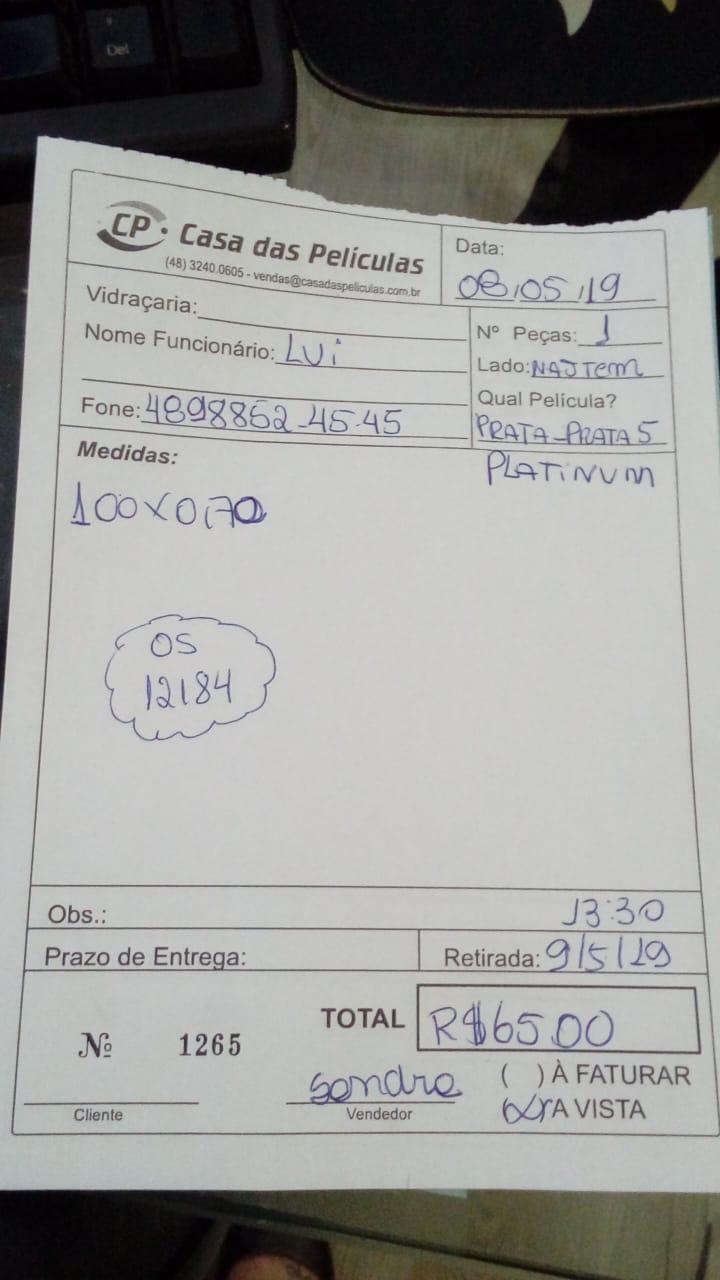 Del
CP · Casa das Películas
(48) 3240.0605 - vendas@casadaspeliculas.com.br
Data:
08/05/19
Vidraçaria:
Nome Funcionário: LUi
Fone: 4898852-45-45
Nº Peças: 1
Lado: NAJTEM
Qual Película?
PRATA-PRATA 5
PLATINUM
Medidas:
100X0,70
OS
12184
Obs.: 13:30
Prazo de Entrega:
Retirada: 9/5/19
Nº 1265
TOTAL R$6500
( ) À FATURAR
A VISTA
Sandra
Cliente
Vendedor